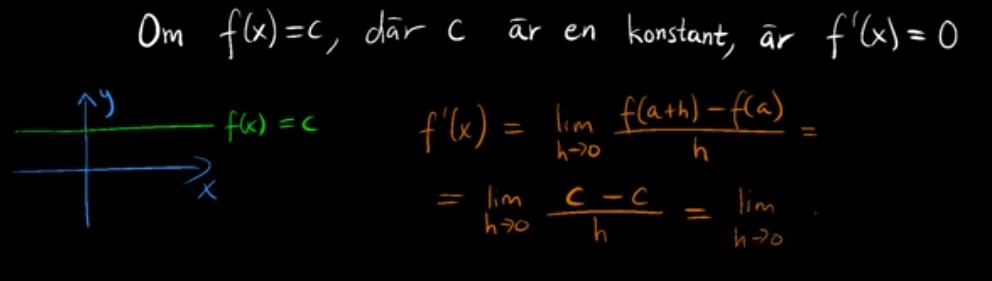 Om f(x)=c, där c är en konstant, är f'(x)=0
y
f(x)=c
x
f'(x) = lim h→0 f(a+h)-f(a) / h =
= lim h→0 c-c / h = lim h→0